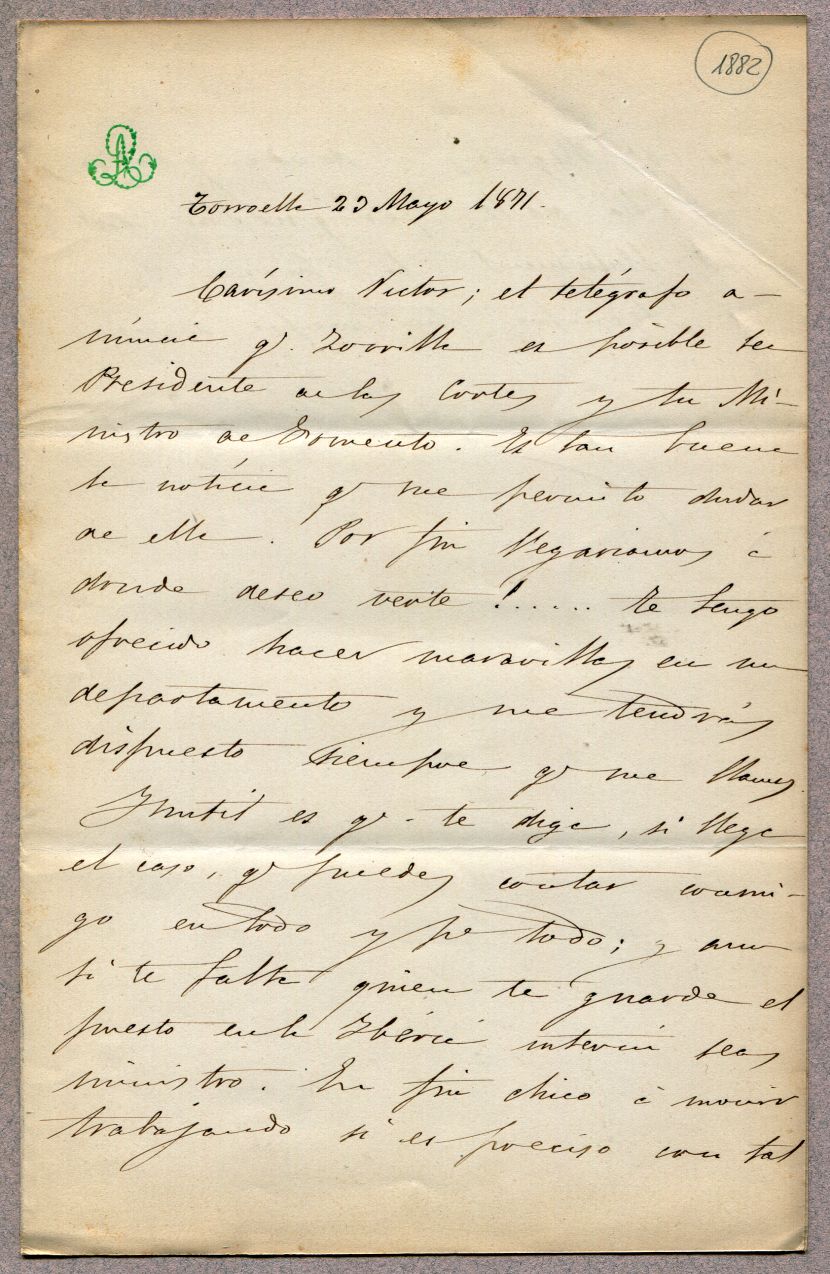 1882
Torroella 23 Mayo 1871.
Carísimo Victor; el telégrafo a-
núncia q.e Zorrilla es posible sea
Presidente de las Cortes y tu Mi-
nistro de Fomento. Es tan buena
la notícia q.e me permito dudar
de ella. Por fin llegariamos á
donde deseo verte!...... Te tengo
ofrecido hacer maravillas en un
departamento y me tendrás
dispuesto siempre q.e me llames
Inutil es q.e te diga, si llega
el caso, q.e puedes contar conmi-
go en todo y p.a todo; y aun
si te falta quien te guarde el
puesto en la Ibéria interin seas
ministro. En fin chico á morir
trabajando si es preciso con tal